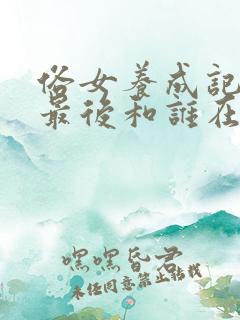 俗女養成記
最後和誰在
嘿嘿昏君
未经同意禁止转载